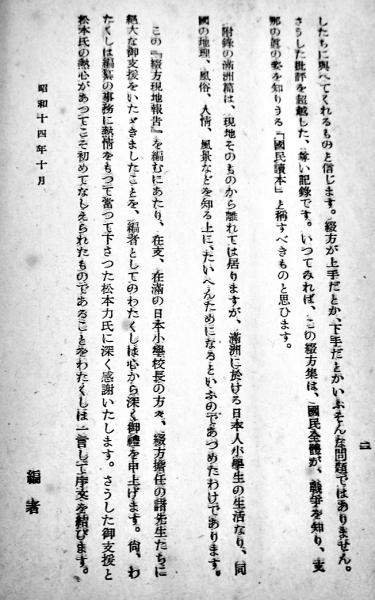 したちに與へてくれるものと信じます。綴方が上手だとか、下手だとかいふそんな問題ではありません。
さうした批評を超越した、尊い記錄です。いつてみれば、この綴方集は、國民全體が、戰爭を知り、支
那の眞の姿を知りうる『國民讀本』と稱すべきものと思ひます。
附錄の滿洲篇は、現地そのものから離れては居りますが、滿洲に於ける日本人小學生の生活なり、同
國の地理、風俗、人情、風景などを知る上に、たいへんためになるといふのであつめたわけであります。
この『綴方現地報告』を編むにあたり、在支、在滿の日本小學校長の方々、綴方擔任の諸先生たちに
絕大な御支援をいただきましたことを、編者としてのわたくしは心から深く御禮を申上げます。尙、わ
たくしは編纂の事務に熱情をもつて當つて下さつた松本力氏に深く感謝いたします。さうした御支援と
松本氏の熱心があつてこそ初めてなしえられたものであることをわたくしは一言して序文を結びます。
昭和十四年十月
編者
二